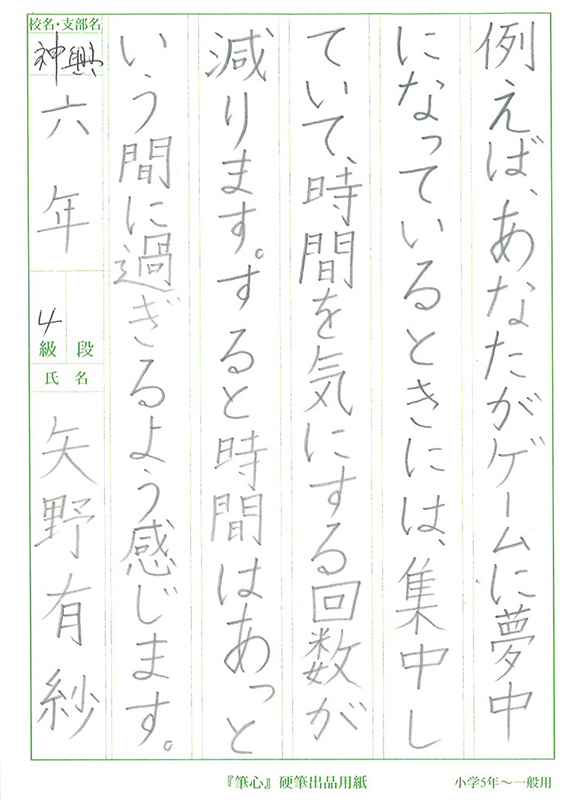 例えば、あなたがゲームに夢中
になっているときには、集中し
ていて、時間を気にする回数が
減ります。すると時間はあっと
いう間に過ぎるよう感じます。
校名・支部名
神興
六年
4
級 段
氏名
矢野有紗
『筆心』硬筆出品用紙
小学5年〜一般用